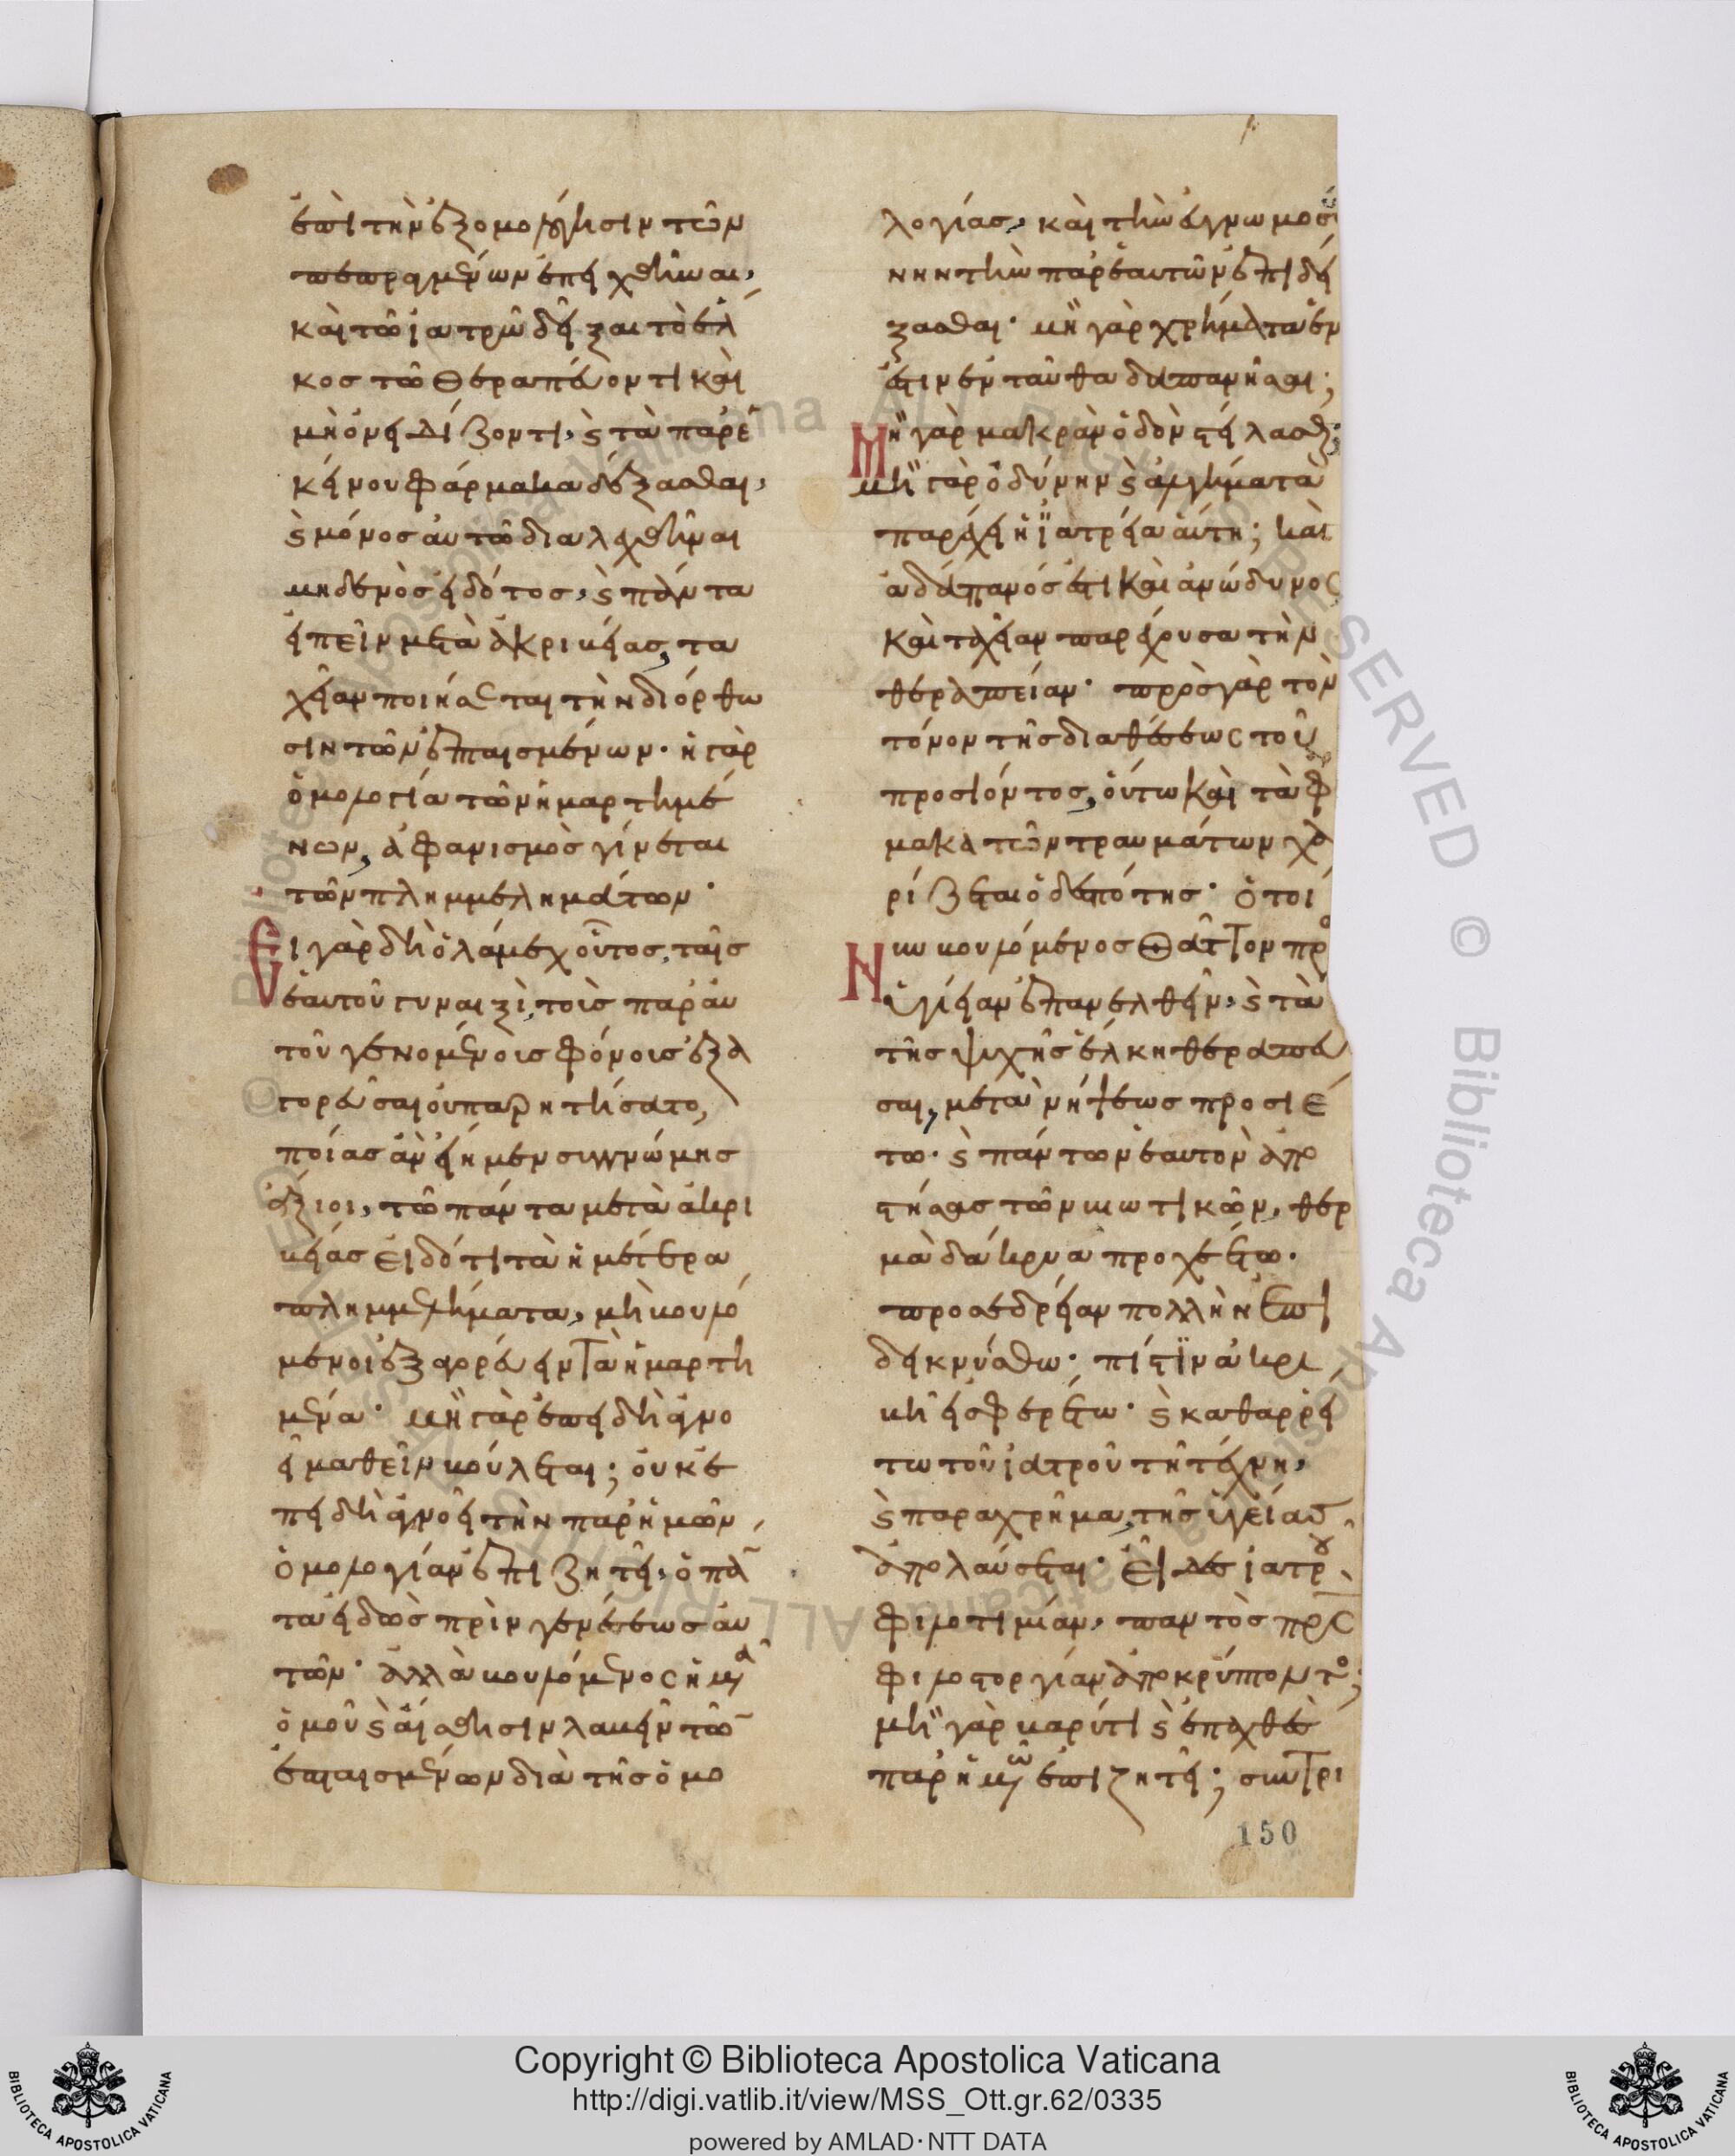 ἐπὶ τὴν ἐξομολόγησιν τῶν
πεπραγμένων ἐπειχθῆναι,
καὶ τῶ ἰατρῶ δεῖξαι τὸ ἕλ
κος τῶ θεραπεύοντι καὶ
μὴ ὀνειδίζοντι, ϗ τὰ παρ' ἐ
κείνου φάρμακα δέξασθαι,
ϗ μόνος αὐτῶ διαλεχθῆναι
μηδενὸς εἰδότος, ϗ πάντα
εἰπεῖν μετὰ ἀκριβείας, τα
χεῖαν ποιήσεται τὴν διόρθω
σιν τῶν ἐπταισμένων· ἡ γὰρ
ὁμολογία τῶν ἡμαρτημέ
νων, ἀφανισμὸς γίνεται
τῶν πλημμελημάτων·
Εἰ γὰρ δὴ ὁ λάμεχ οὗτος, ταῖς
ἑαυτοῦ γυναιξὶ, τοὺς παρ' αὐ
τοῦ γενομένους φόνους ἐξα
γορεῦσαι οὐ παρητήσατο,
ποίας ἂν εἴημεν συγγνώμης
ἄξιοι, τῶ πάντα μετὰ ἀκρι
βείας εἰδότι τὰ ἡμέτερα
πλημμελήματα, μὴ βουλό
μενοι ἐξαγορεύειν τὰ ἡμαρτη
μένα· μὴ γὰρ ἐπειδὴ ἀγνο
εῖ μαθεῖν βούλεται; οὐκ ἐ
πειδὴ ἀγνοεῖ τὴν παρ' ἡμῶν
ὁμολογίαν ἐπιζητεῖ, ὁ πάν
τα εἰδὼς πρὶν γενέσεως αὐ
τῶν· ἀλλὰ βουλόμενος ἡμᾶς
ὁμοῦ ϗ αἴσθησιν λαβεῖν τῶν
ἐπταισμένων διὰ τῆς ὁμο
λογίας, καὶ τὴν εὐγνωμοσύ
νην τὴν παρ' ἑαυτῶν ἐπιδεί
ξασθαι· μὴ γὰρ χρήματα ἔν
ἐστιν ἐνταῦθα δαπανῆσαι;
Μὴ γὰρ μακρὰν ὁδὸν στείλασθαι;
μὴ γὰρ ὀδύνην ϗ ἀλγήματα
παρέχει ἡ ἰατρεία αὕτη; καὶ
ἀδάπανός ἐστι καὶ ἀνώδυνος
καὶ ταχεῖαν παρέχουσα τὴν
θεραπείαν· πρὸς γὰρ τὸν
τόνον τῆς διαθέσεως τοῦ
προσιόντος, οὕτω καὶ τὰ φάρ
μακα τῶν τραυμάτων χο
ρίζεται ὁ δεσπότης· ὁ τοί
Νυν βουλόμενος θᾶττον πρὸς
ὑγίειαν ἐπανελθεῖν, ϗ τὰ
τῆς ψυχῆς ἕλκη θεραπεῦ
σαι, μετὰ νήψεως προσιέ
τω· ϗ πάντων ἑαυτὸν ἀπο
στήσας τῶν βιωτικῶν, θερ
μὰ δάκρυα προχεέτω·
προσεδρείαν πολλὴν ἐπι
δεικνύσθω· πίστιν ἀκρι
βῆ εἰσφερέτω· ϗ καθαρρεί
τω τοῦ ἰατροῦ τῆ τέχνη,
ϗ παραχρῆμα τῆς ὑγείας
ἀπολαύσεται· Εἶδες ἰατροῦ
φιλοτιμίαν, παντὸς πρς
φιλοστοργίαν ἀποκρύπτουσαν;
μὴ γὰρ βαρύ τι ϗ ἐπαχθὲς
παρ' ἡμῶν ἐπιζητεῖ; συντρι
150
Copyright © Biblioteca Apostolica Vaticana
http://digi.vatlib.it/view/MSS_Ott.gr.62/0335
powered by AMLAD·NTT DATA